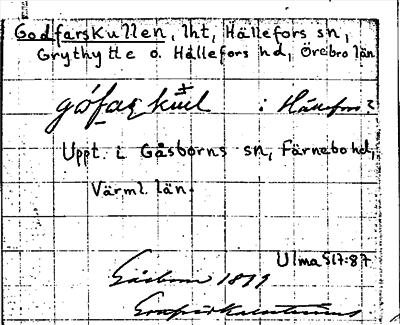 Godfarskullen, lht, Hällefors sn,
Grythytte o. Hällefors hd, Örebro län
i Hällefors?
Uppt. i Gåsborns sn, Färnebo hd,
Värml. län.
Ulma 517:87
Gåsborn 1899